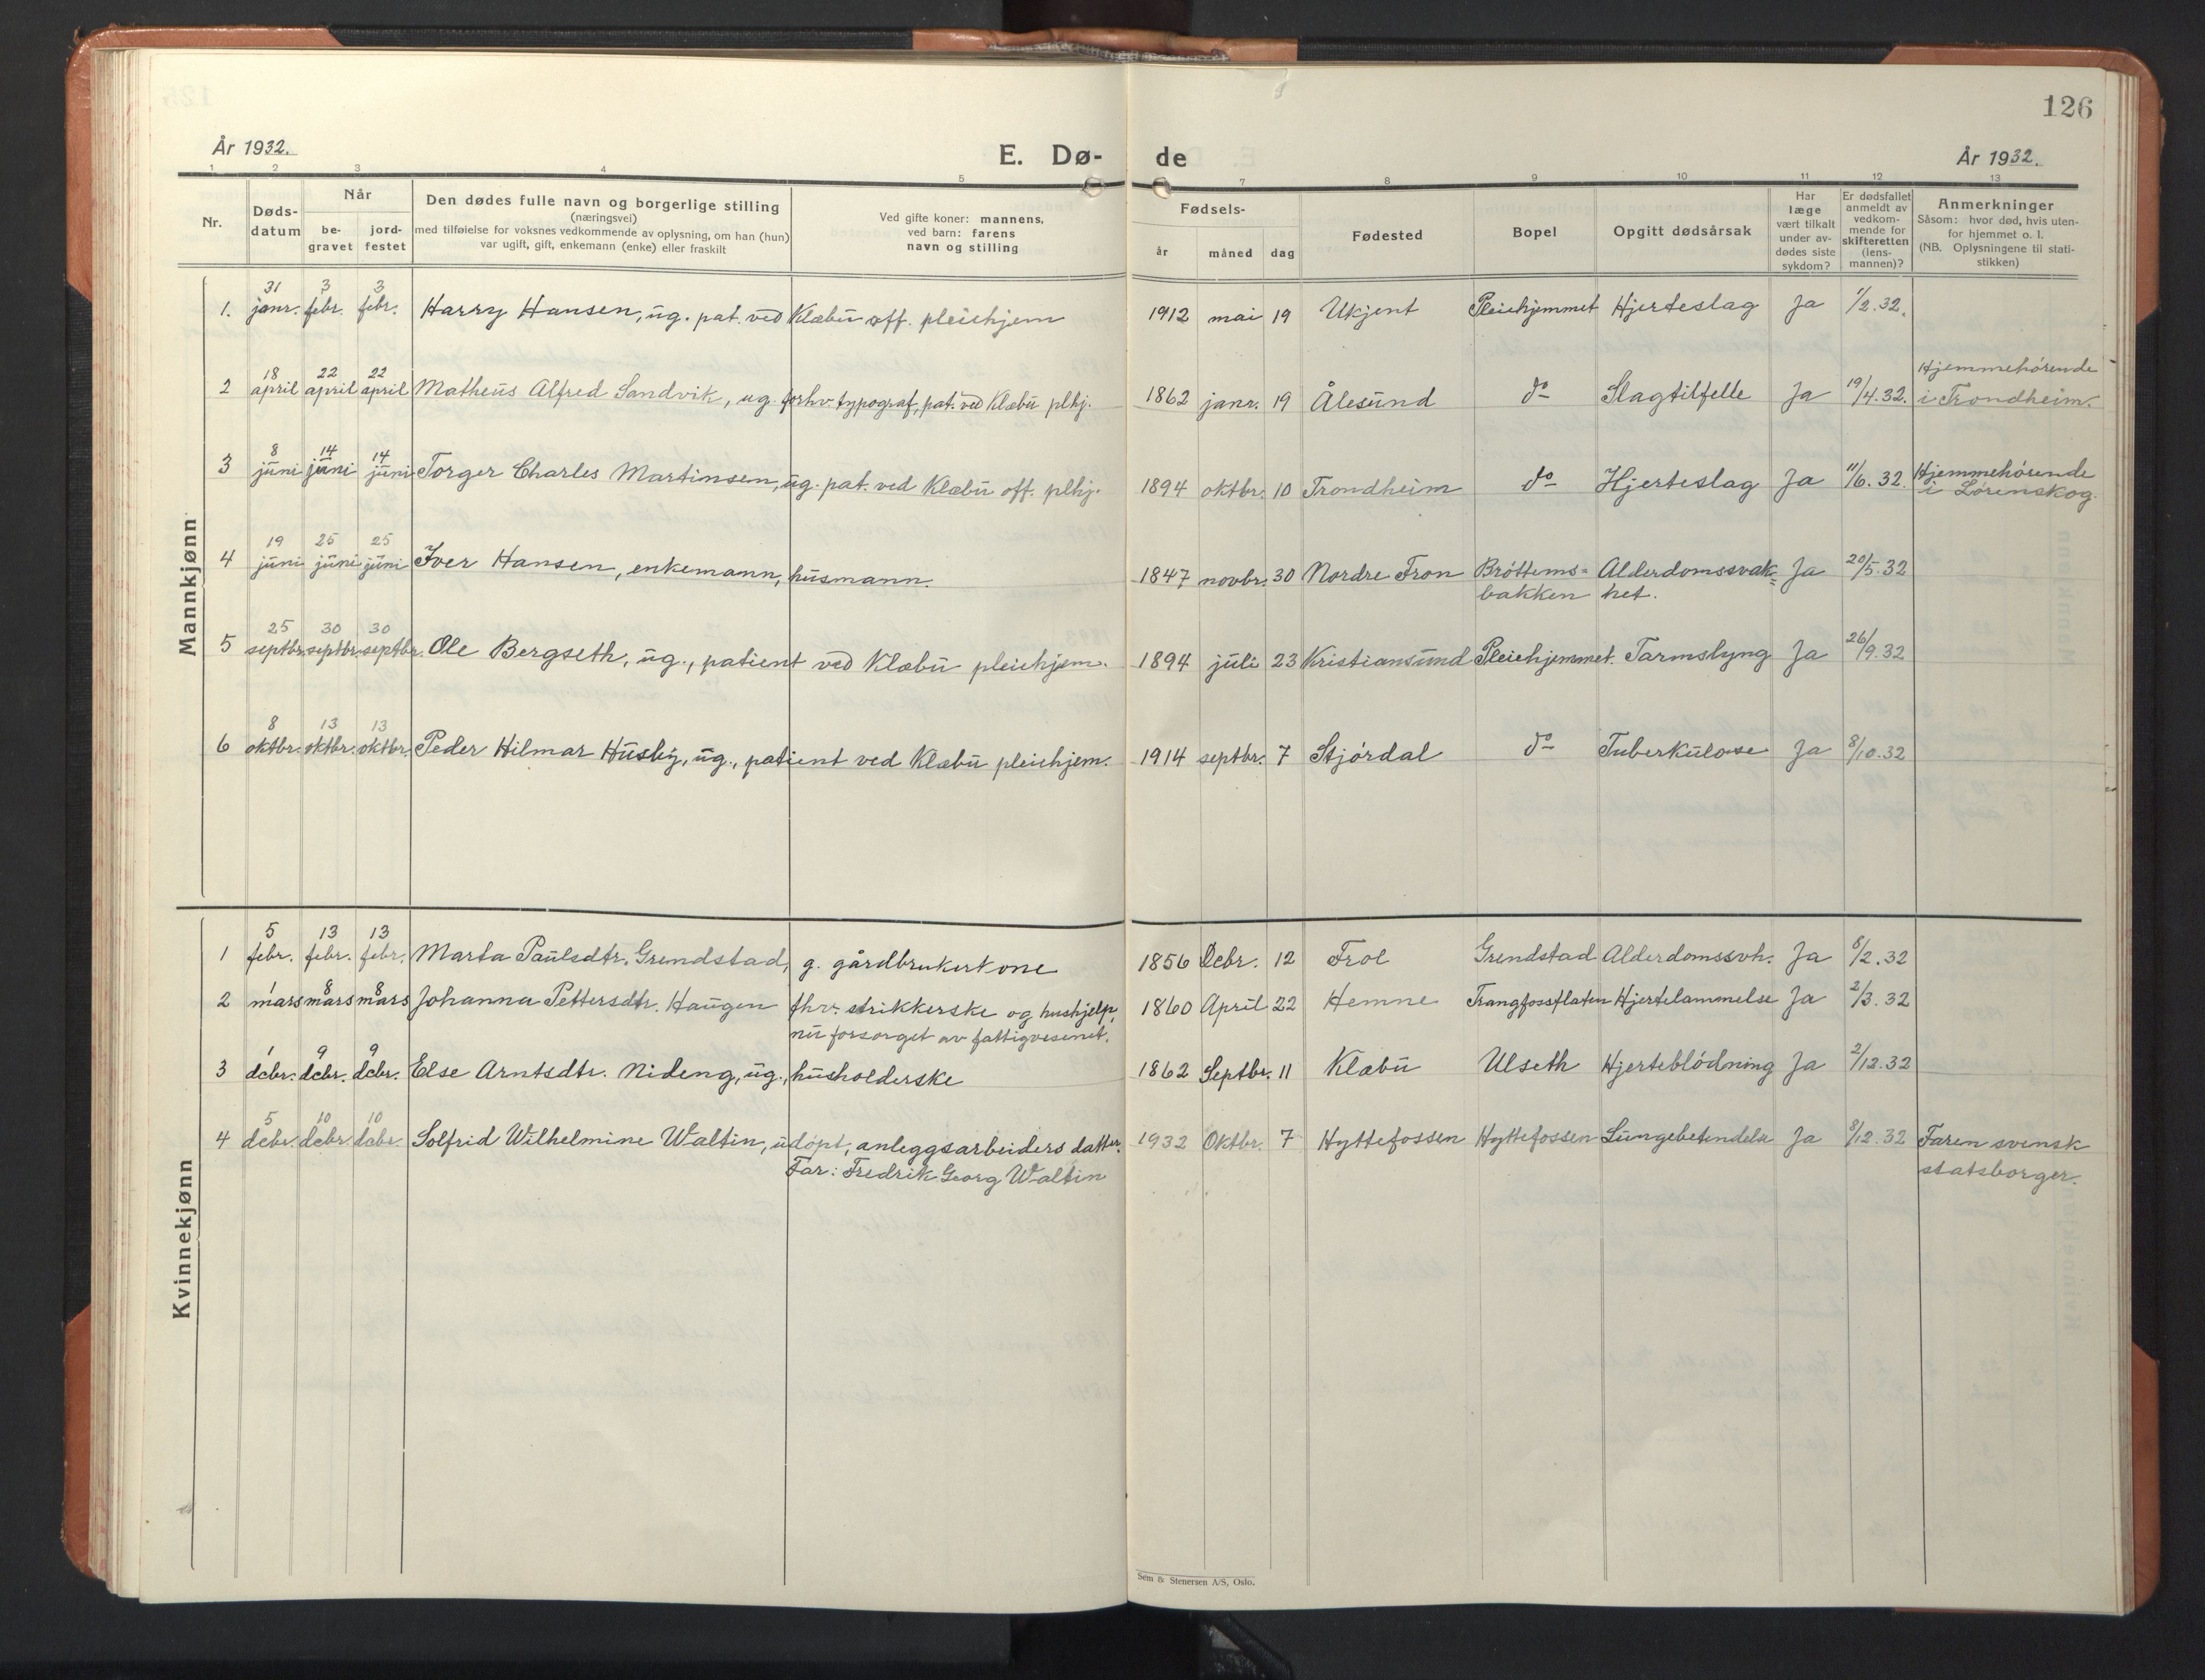 126
År 1932.
E. Dø- de
År 1932.
1 2 3 4 5 7 8 9 10 11 12 13
Nr.
Døds-
datum
Når
be-
gravet
jord-
festet
Den dødes fulle navn og borgerlige stilling
(næringsvei)
med tilføielse for voksnes vedkommende av oplysning, om han (hun)
var ugift, gift, enkemann (enke) eller fraskilt
Ved gifte koner: mannens,
ved barn: farens
navn og stilling
Fødsels-
år måned dag
Fødested
Bopel
Opgitt dødsårsak
Har
læge
vært tilkalt
under av-
dødes siste
sykdom?
Er dødsfallet
anmeldt av
vedkom-
mende for
skifteretten
(lens-
mannen)?
Anmerkninger
Såsom: hvor død, hvis uten-
for hjemmet o. l.
(NB. Oplysningene til stati-
stikken)
Mannkjønn
31 3 3
1. janr. febr. febr. Harry Hansen, ug. pat. ved Klæbu off. pleiehjem 1912 mai 19 Ukjent Pleiehjemmet Hjerteslag Ja 1/2.32.
18 22 22 Hjemmehørende
2 april april april Matheus Alfred Sandvik, ug. forhv. typograf, pat. ved Klæbu plhj. 1862 janr. 19 Ålesund do Slagtilfelle Ja 19/4.32. i Trondheim.
8 14 14
3 juni juni juni Torger Charles Martinsen, ug. pat. ved Klæbu off. plhj. 1894 oktbr. 10 Trondheim do Hjerteslag Ja 11/6.32. Hjemmehørende
i Lørenskog.
19 25 25
4 juni juni juni Iver Hansen, enkemann, husmann. 1847 novbr. 30 Nordre Fron Brøttems= Alderdomssvak= Ja 20/5.32
bakken het.
25 30 30
5 septbr. septbr. septbr. Ole Bergseth, ug., patient ved Klæbu pleiehjem. 1894 juli 23 Kristiansund Pleiehjemmet. Tarmslyng Ja 26/9.32
8 13 13
6 oktbr. oktbr. oktbr. Peder Hilmar Husby, ug., patient ved Klæbu pleiehjem. 1914 septbr. 7 Stjørdal do Tuberkulose Ja 8/10.32
Kvinnekjønn
5 13 13
1 febr. febr. febr. Marta Paulsdtr. Grendstad, g. gårdbrukerkone 1856 Debr. 12 Frol Grendstad Alderdomssvh. Ja 8/2.32
1 8 8
2 mars mars mars Johanna Pettersdtr. Haugen fhv. strikkerske og hushjelp, 1860 April 22 Hemne Trangfossflaten Hjertelammelse Ja 2/3.32
nu forsørget av fattigvesenet.
1 9 9
3 debr. debr. debr. Else Arntsdtr. Nideng, ug., husholderske 1862 Septbr. 11 Klæbu Ulseth Hjerteblødning Ja 2/12.32
5 10 10
4 debr. debr. debr. Solfrid Wilhelmine Waltin, udøpt, anleggsarbeiders datter. 1932 Oktbr. 7 Hyttefossen Hyttefossen Lungebetendelse Ja 8/12.32 Faren svensk
Far: Fredrik Georg Waltin statsborger.
Sem & Stenersen A/S, Oslo.